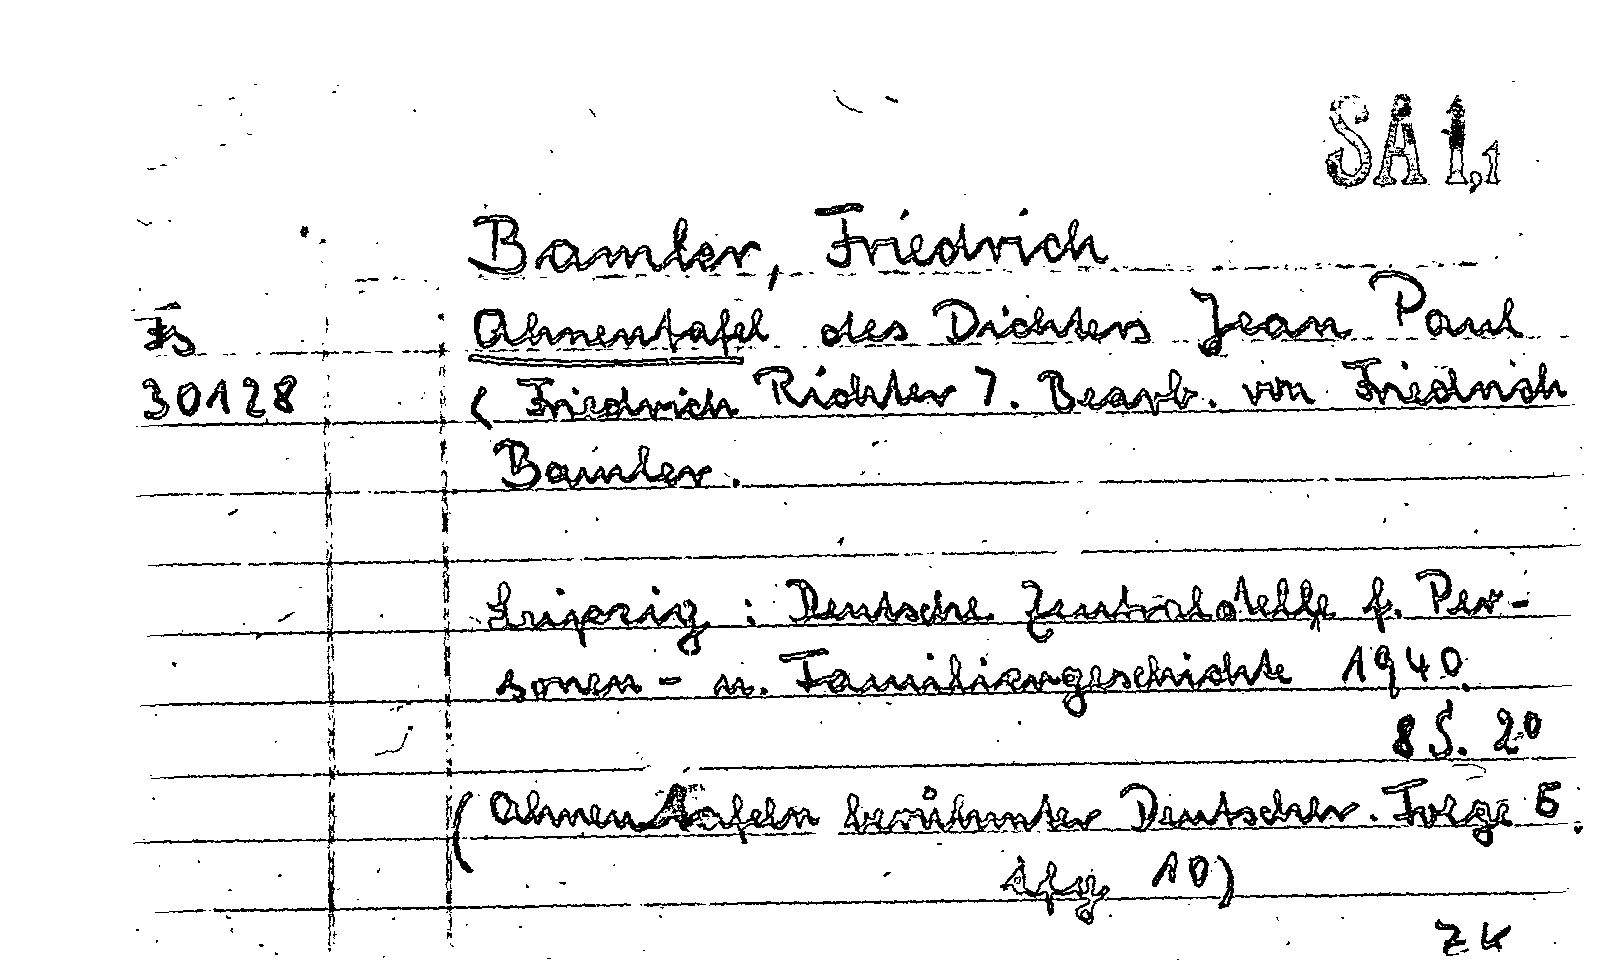 SA 1,1
Bamler, Friedrich
Fs
Ahnentafel des Dichters Jean Paul
30128
(Friedrich Richter). Bearb. von Friedrich
Bamler.
Leipzig: Deutsche Zentralstelle f. Per-
sonen- u. Familiengeschichte 1940.
8 S. 2°
(Ahnentafeln berühmter Deutscher. Folge 5.
Lfg 10)
ZK